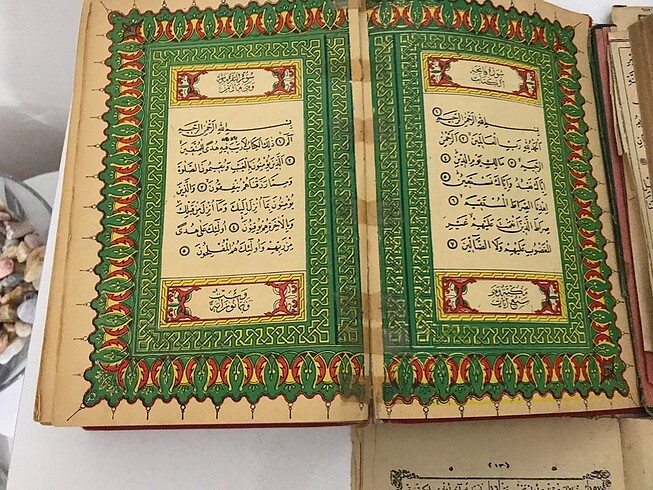 سورة فاتحة
الكتاب
بِسْمِ اللّٰهِ الرَّحْمٰنِ الرَّحِيمِ ١
اَلْحَمْدُ لِلّٰهِ رَبِّ الْعَالَمِينَ ٢ اَلرَّحْمٰنِ
الرَّحِيمِ ٣ مَالِكِ يَوْمِ الدِّينِ ٤
اِيَّاكَ نَعْبُدُ وَاِيَّاكَ نَسْتَعِينُ ٥
اِهْدِنَا الصِّرَاطَ الْمُسْتَقِيمَ ٦
صِرَاطَ الَّذِينَ اَنْعَمْتَ عَلَيْهِمْ غَيْرِ
الْمَغْضُوبِ عَلَيْهِمْ وَلَا الضَّالِّينَ ٧
سبع آيات
سورة البقرة
بِسْمِ اللّٰهِ الرَّحْمٰنِ الرَّحِيمِ
الٓمٓ ١ ذٰلِكَ الْكِتَابُ لَا رَيْبَ فِيهِ هُدًى لِلْمُتَّقِينَ ٢
اَلَّذِينَ يُؤْمِنُونَ بِالْغَيْبِ وَيُقِيمُونَ الصَّلٰوةَ
وَمِمَّا رَزَقْنَاهُمْ يُنْفِقُونَ ٣ وَالَّذِينَ
يُؤْمِنُونَ بِمَا اُنْزِلَ اِلَيْكَ وَمَا اُنْزِلَ مِنْ قَبْلِكَ
وَبِالْاٰخِرَةِ هُمْ يُوقِنُونَ ٤ اُولٰئِكَ عَلٰى هُدًى
مِنْ رَبِّهِمْ وَاُولٰئِكَ هُمُ الْمُفْلِحُونَ ٥
وست
وثمانون آية
(١٣)